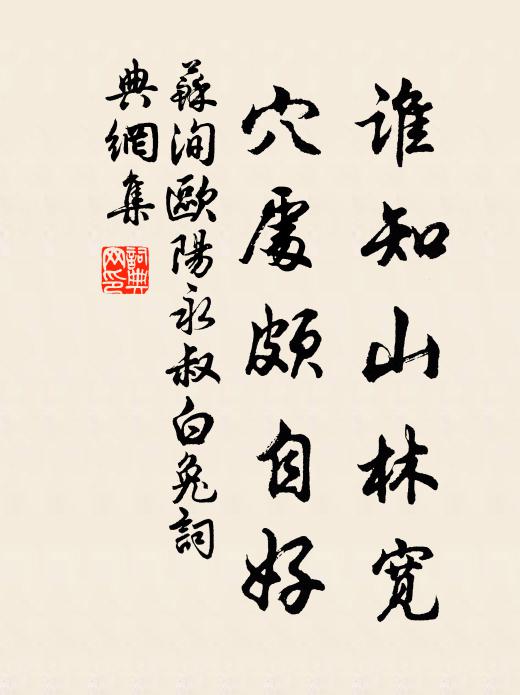 誰知山林寬
穴處頗自好
蘇洵歐陽永叔白兔詞
典網集
詞典網印